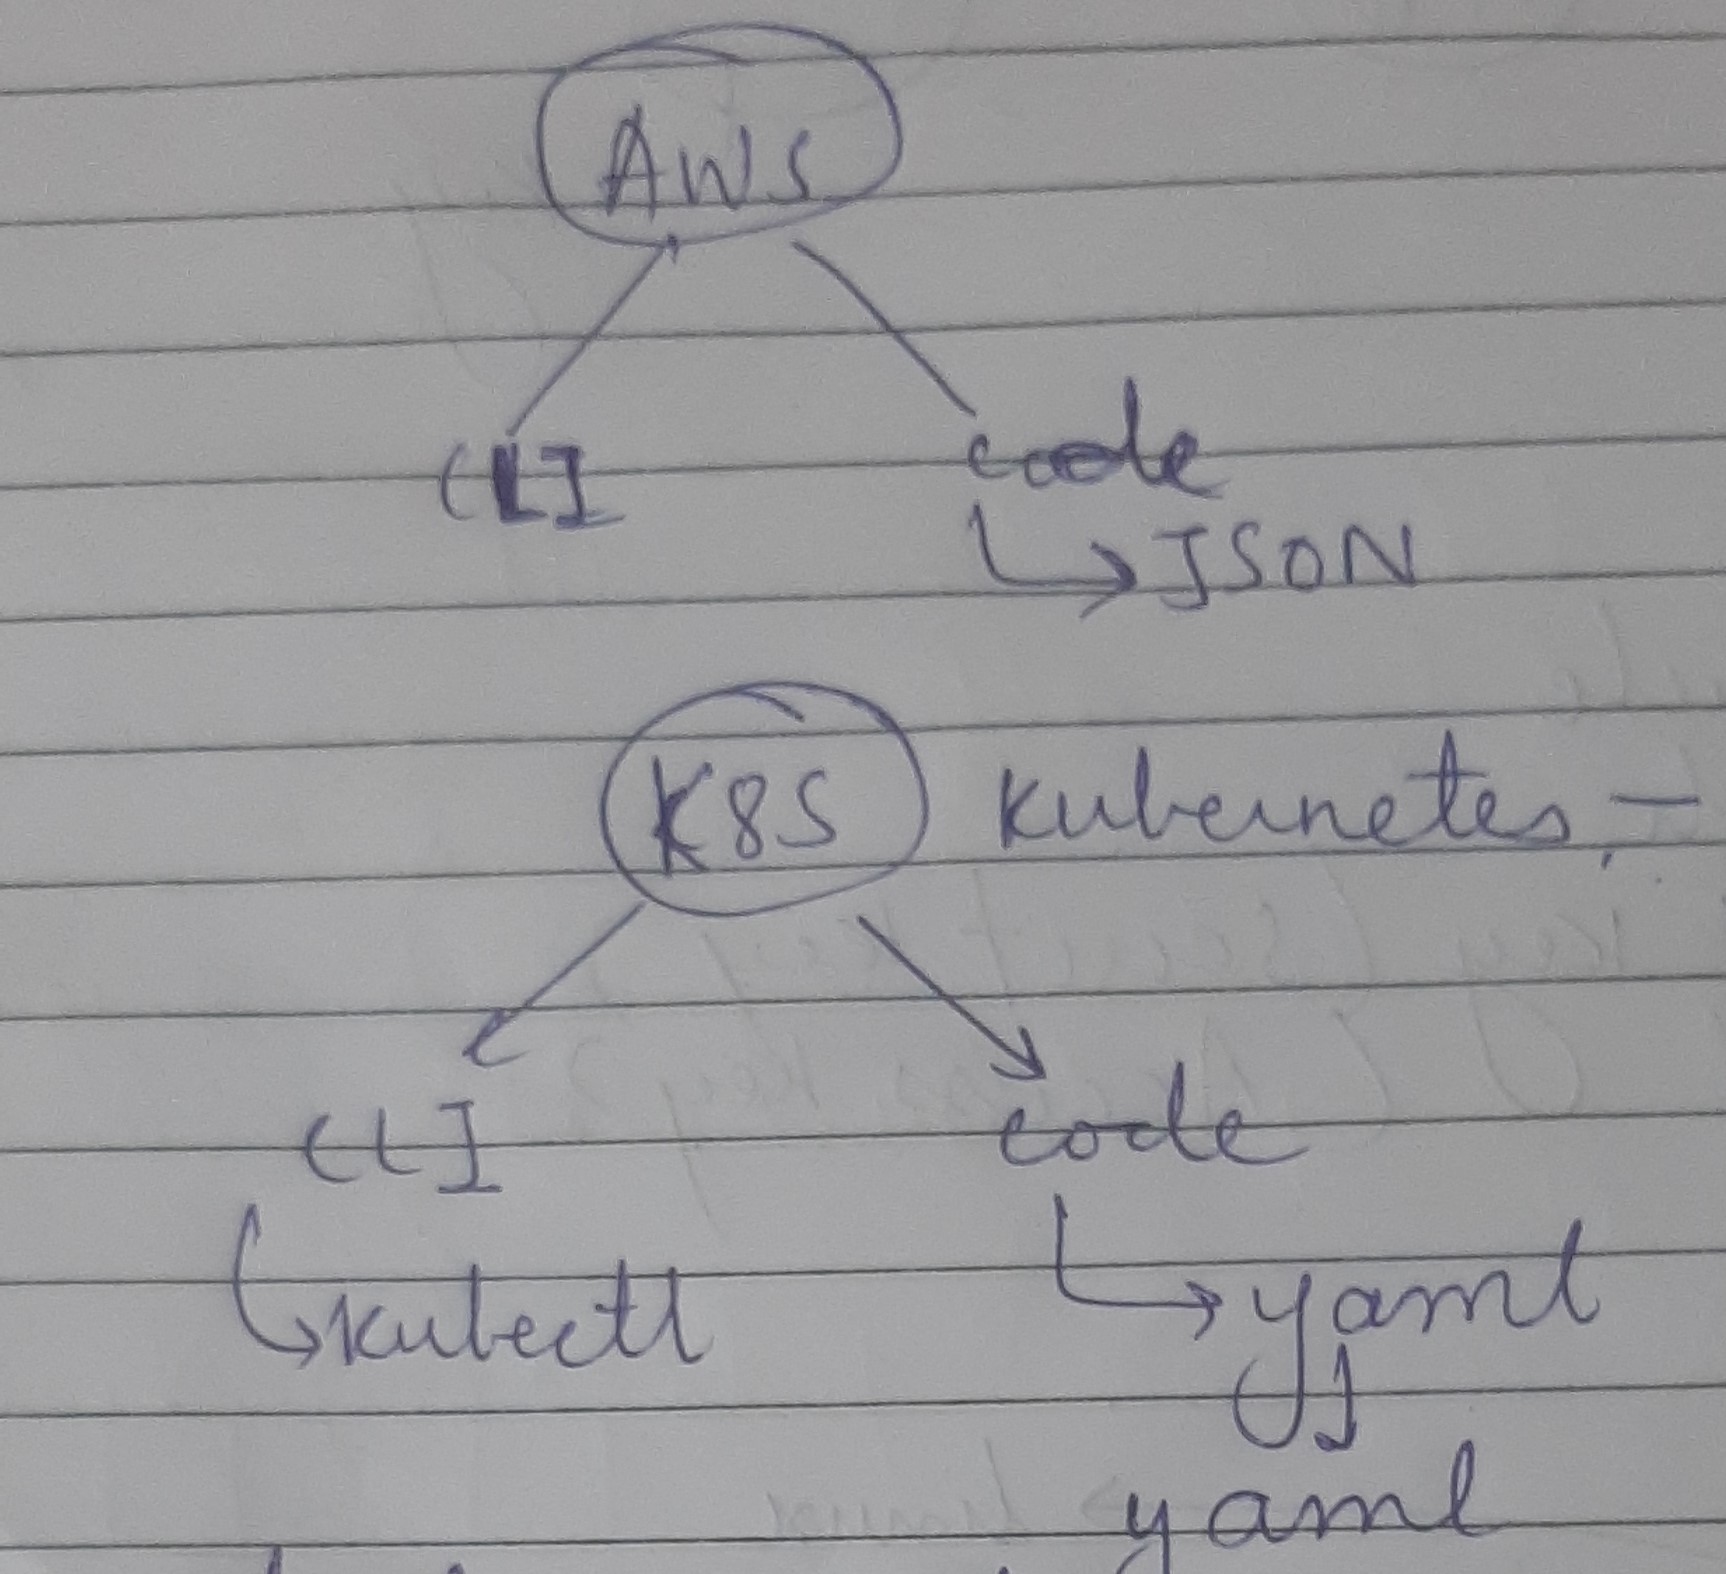 AWS
CLI code
→ JSON
K8S Kubernetes, -
CLI code
→ kubectl → yaml
yaml